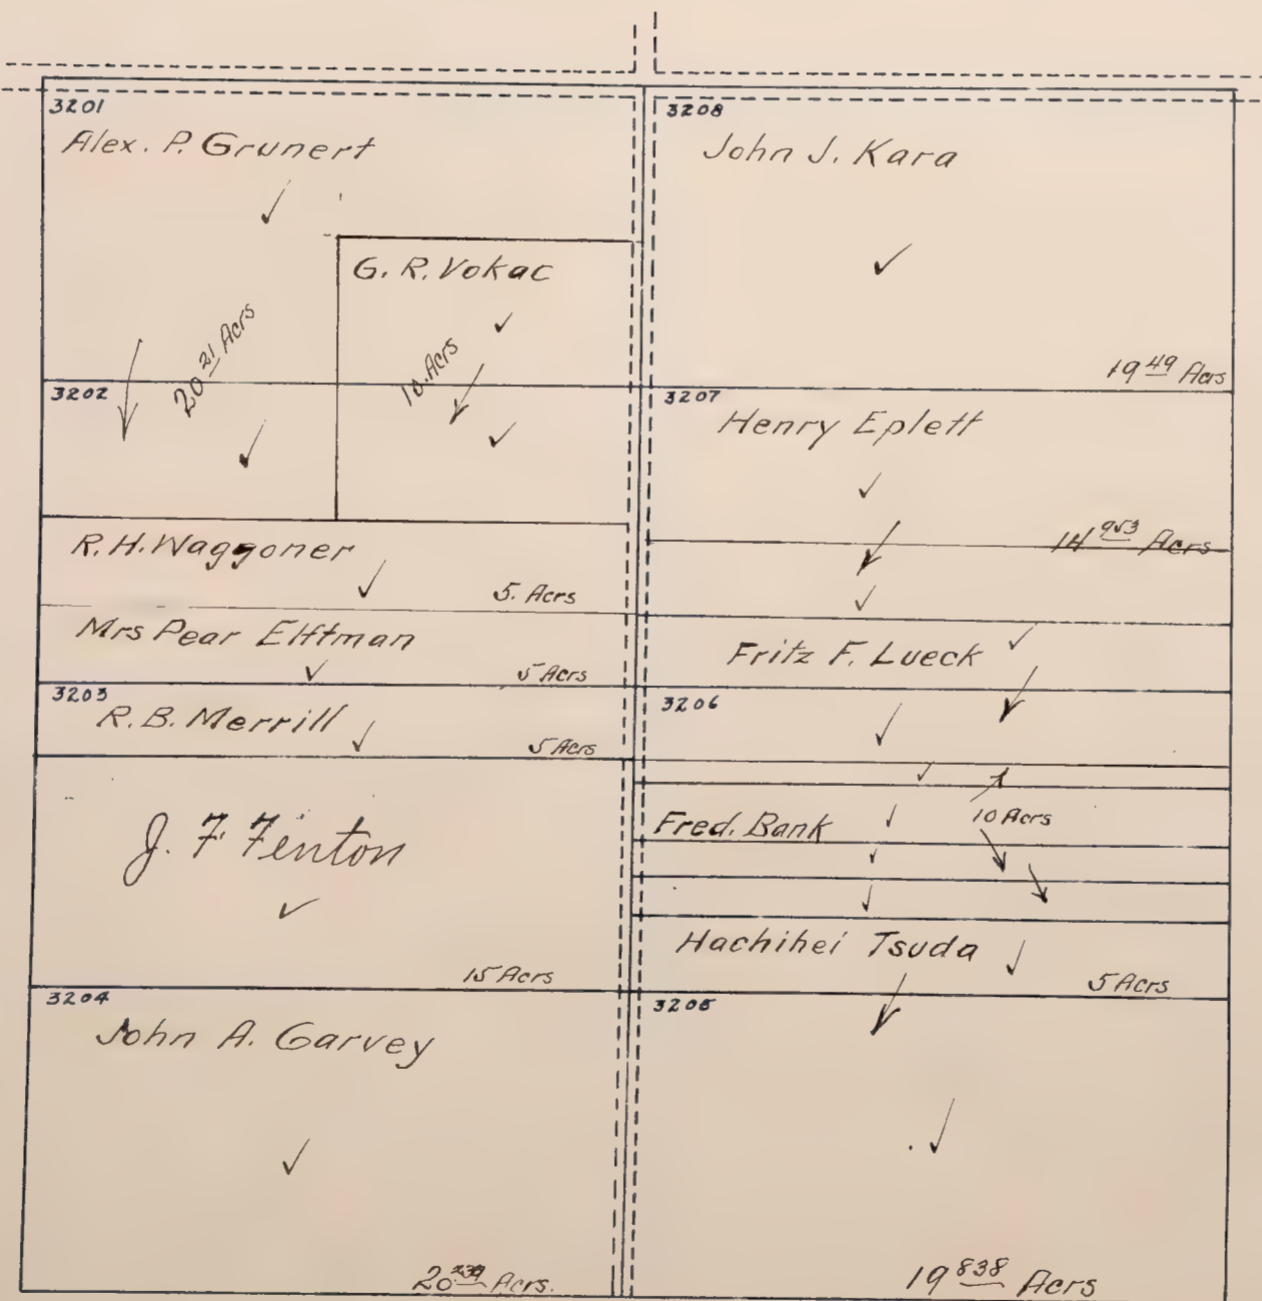 3201
Alex. P. Grunert
20 21 Acrs
G. R. Vokac
10. Acrs
3202
R. H. Waggoner
5. Acrs
Mrs Pear Elftman
5 Acrs
3203
R. B. Merrill
5 Acrs
J. F. Fenton
15 Acrs
3204
John A. Garvey
20 239 Acrs.
3208
John J. Kara
19 49 Acrs
3207
Henry Eplett
14 953 Acrs
Fritz F. Lueck
3206
10 Acrs
Fred. Bank
Hachihei Tsuda
5 Acrs
3205
19 838 Acrs